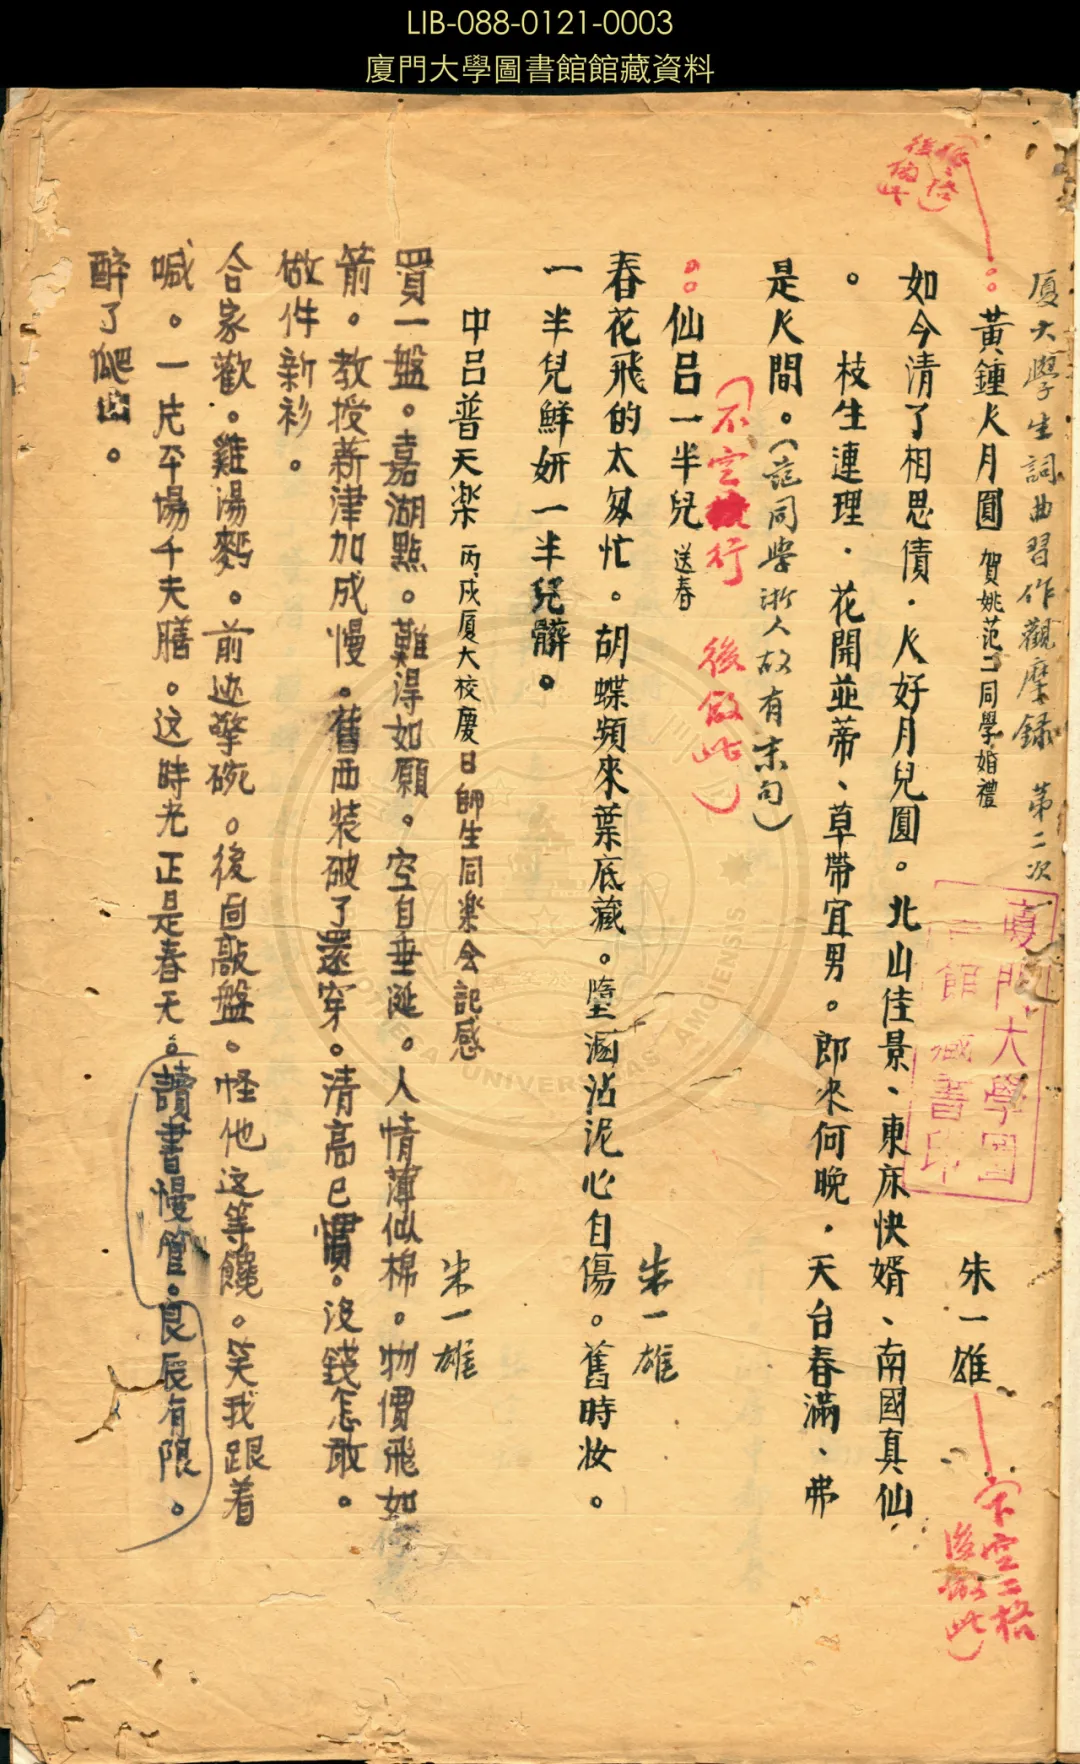 LIB-088-0121-0003
廈門大學圖書館館藏資料
厦大學生詞曲習作觀摩録 第二次
黃鍾人月圓 賀姚范二同學婚禮 朱一雄
如今清了相思債．人好月兒圓。北山佳景、東床快婿、南國真仙
。枝生連理．花開並蒂、草帶宜男。郎來何晚．天台春滿、弗
是人間。（范同學浙人故有末句）
仙呂一半兒 送春 朱一雄
春花飛的太匆忙。胡蝶頻來葉底藏。墮溷沾泥心自傷。舊時妝。
一半兒鮮妍一半兒髒。
中呂普天楽 丙戌厦大校慶日師生同楽会記感 朱一雄
買一盤。嘉湖點。難得如願。空自垂涎。人情薄似棉。物價飛如
箭。教授薪津加成慢。舊西装破了還穿。清高已慣。沒錢怎敢。
做件新衫。
合家歡。雞湯麪。前逃擎碗。後面敲盤。怪他这等饞。笑我跟着
喊。一片平場千夫膳。这時光正是春天。讀書慢管。良辰有限。
醉了爬出。
（不空行 後倣此）
空二格
後倣此）
廈門大學圖
館藏書印
UNIVERSITAS AMOIENSIS